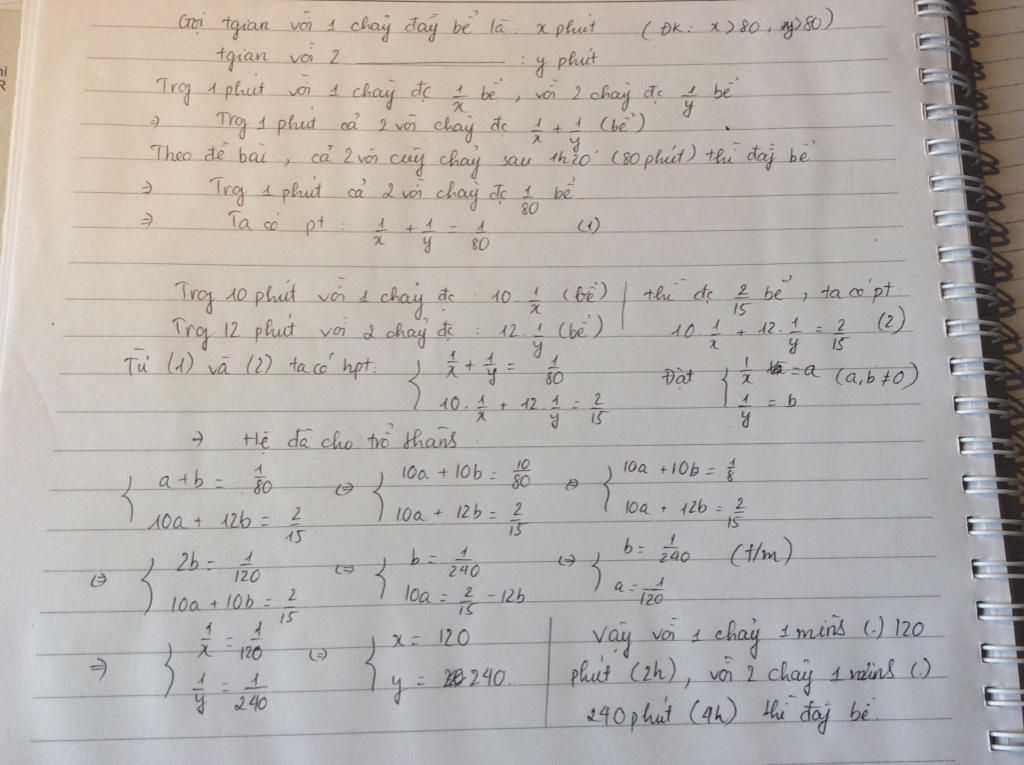 Gọi tgian vòi 1 chảy đầy bể là : x phút (ĐK: x>80, y>80)
tgian vòi 2 ———— : y phút
Trg 1 phút vòi 1 chảy đc 1/x bể, vòi 2 chảy đc 1/y bể
⇒ Trg 1 phút cả 2 vòi chảy đc 1/x + 1/y (bể)
Theo đề bài, cả 2 vòi cùg chảy sau 1h20' (80 phút) thì đầy bể
⇒ Trg 1 phút cả 2 vòi chảy đc 1/80 bể
⇒ Ta có pt : 1/x + 1/y = 1/80 (1)
Trg 10 phút vòi 1 chảy đc : 10. 1/x (bể) | thì đc 2/15 bể, ta có pt
Trg 12 phút vòi 2 chảy đc : 12. 1/y (bể) | 10. 1/x + 12. 1/y = 2/15 (2)
Từ (1) và (2) ta có hpt: { 1/x + 1/y = 1/80 Đặt { 1/x = a (a,b ≠ 0)
10. 1/x + 12. 1/y = 2/15 1/y = b
⇒ Hệ đã cho trở thàh :
{ a + b = 1/80 ⇔ { 10a + 10b = 10/80 ⇔ { 10a + 10b = 1/8
10a + 12b = 2/15 10a + 12b = 2/15 10a + 12b = 2/15
⇔ { 2b = 1/120 ⇔ { b = 1/240 ⇔ { b = 1/240 (t/m)
10a + 10b = 2/15 10a = 2/15 - 12b a = 1/120
⇒ { 1/x = 1/120 ⇔ { x = 120
1/y = 1/240 y = 240.
Vậy vòi 1 chảy 1 mìh (.) 120
phút (2h), vòi 2 chảy 1 mìh (.)
240 phút (4h) thì đầy bể.